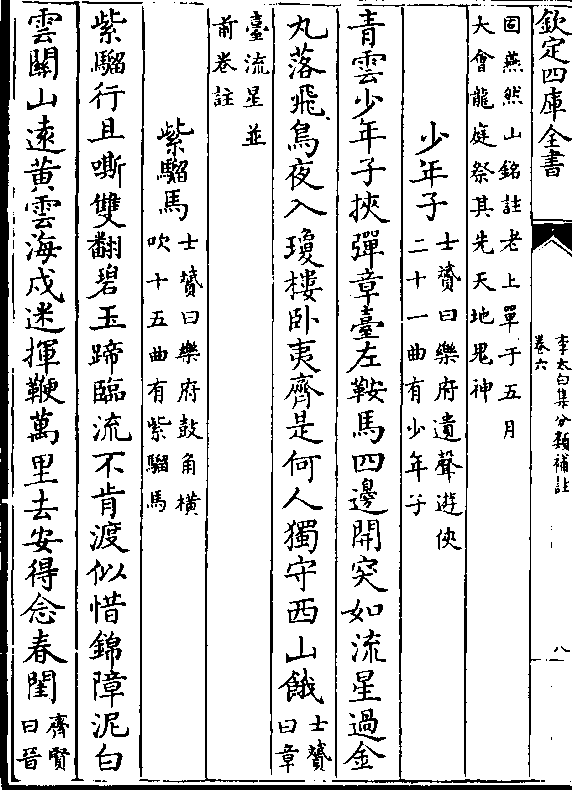 欽定四庫全書
李太白集分類補註
卷六
八
固燕然山銘註老上單于五月
大會龍庭祭其先天地鬼神
少年子
士贇曰樂府遺聲遊俠
二十一曲有少年子
青雲少年子挾彈章臺左鞍馬四邊開突如流星過金
丸落飛鳥夜入瓊樓卧夷齊是何人獨守西山餓
士贇
曰章
臺流星並
前卷註
紫騮馬
士贇曰樂府鼓角橫
吹十五曲有紫騮馬
紫騮行且嘶雙翻碧玉蹄臨流不肯渡似惜錦障泥白
雲關山逺黄雲海戍迷揮鞭萬里去安得念春閨
齊賢
曰晉